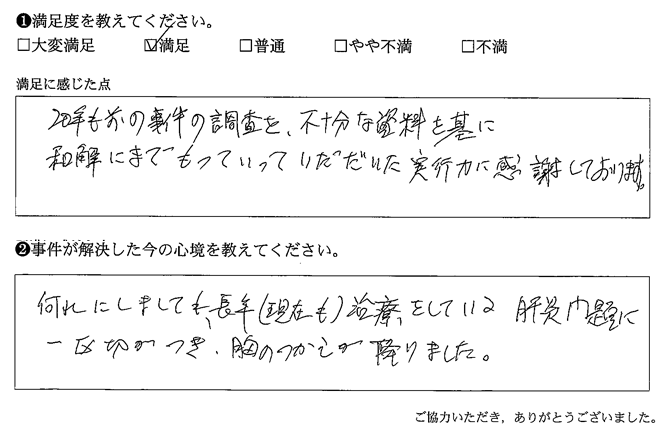 ❶満足度を教えてください。
□大変満足 ☑満足 □普通 □やや不満 □不満
満足に感じた点
20年も前の事件の調査を、不十分な資料を基に
和解にまでもっていっていただいた実行力に感謝しております。
❷事件が解決した今の心境を教えてください。
何れにしましても、長年(現在も)治療をしている 肝炎問題に
一区切がつき、胸のつかえが降りました。
ご協力いただき，ありがとうございました。